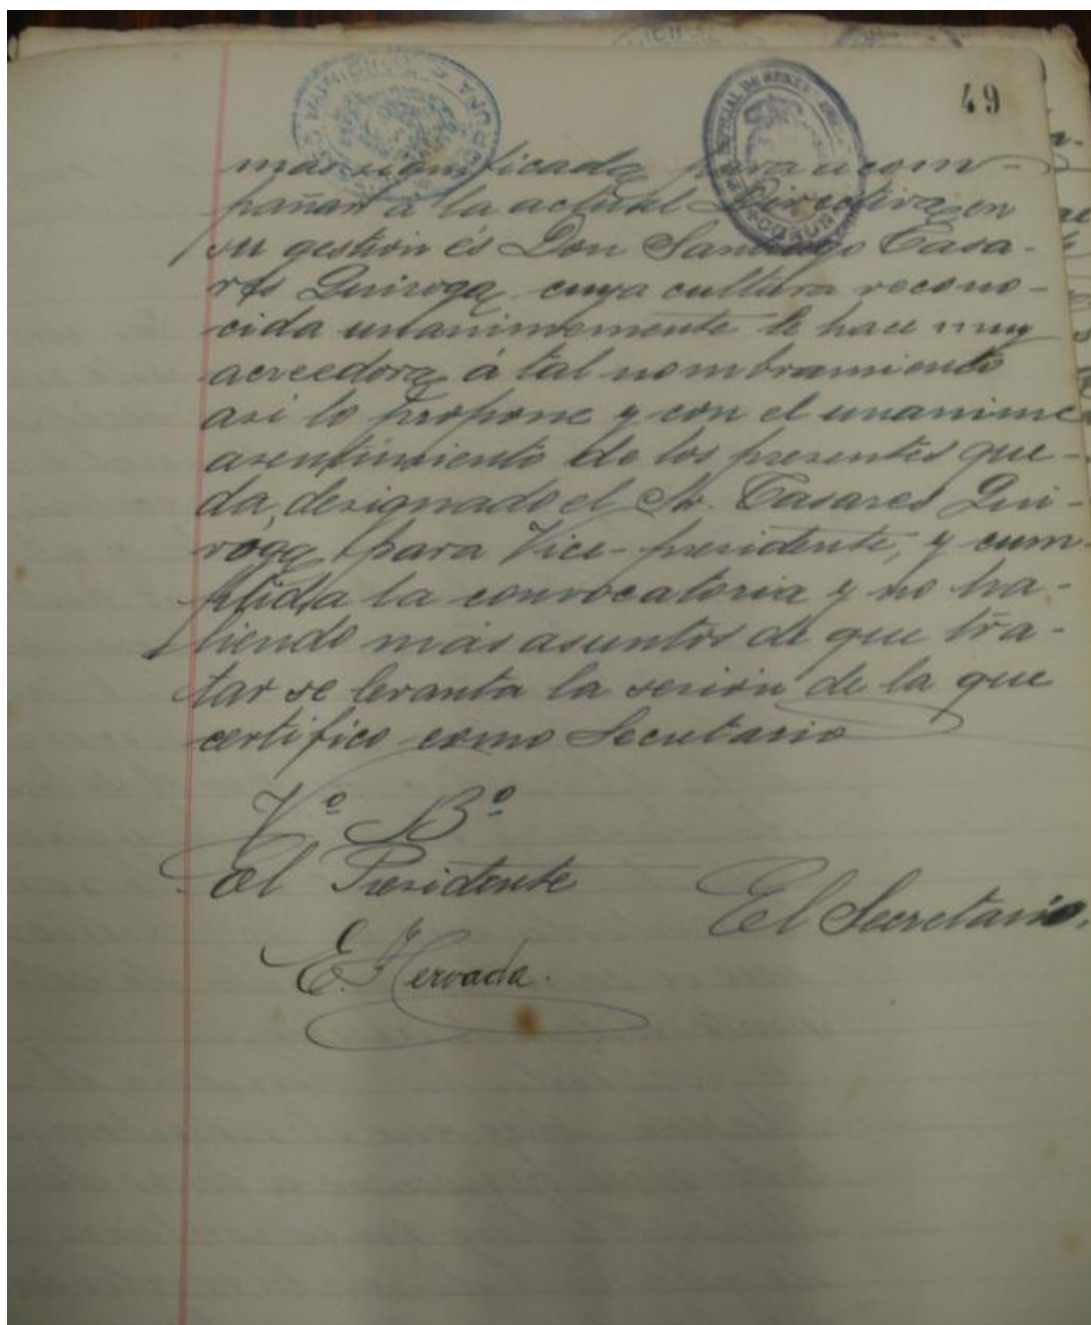 49
más significada, para acom-
pañar a la actual Directiva, en
su gestión és Don Santiago Casa-
res Quiroga, cuya cultura recono-
cida unanimemente le hace muy
acreedora, á tal nombramiento
asi lo propone y con el unanime
asentimiento de los presentes que-
da, designado el Sr. Casares Qui-
roga, para Vice-presidente, y cum-
plida la convocatoria y no ha-
biendo más asuntos de que tra-
tar se levanta la sesión de la que
certifico como Secretario
Vº Bº
El Presidente
El Secretario.
E. Hervada.